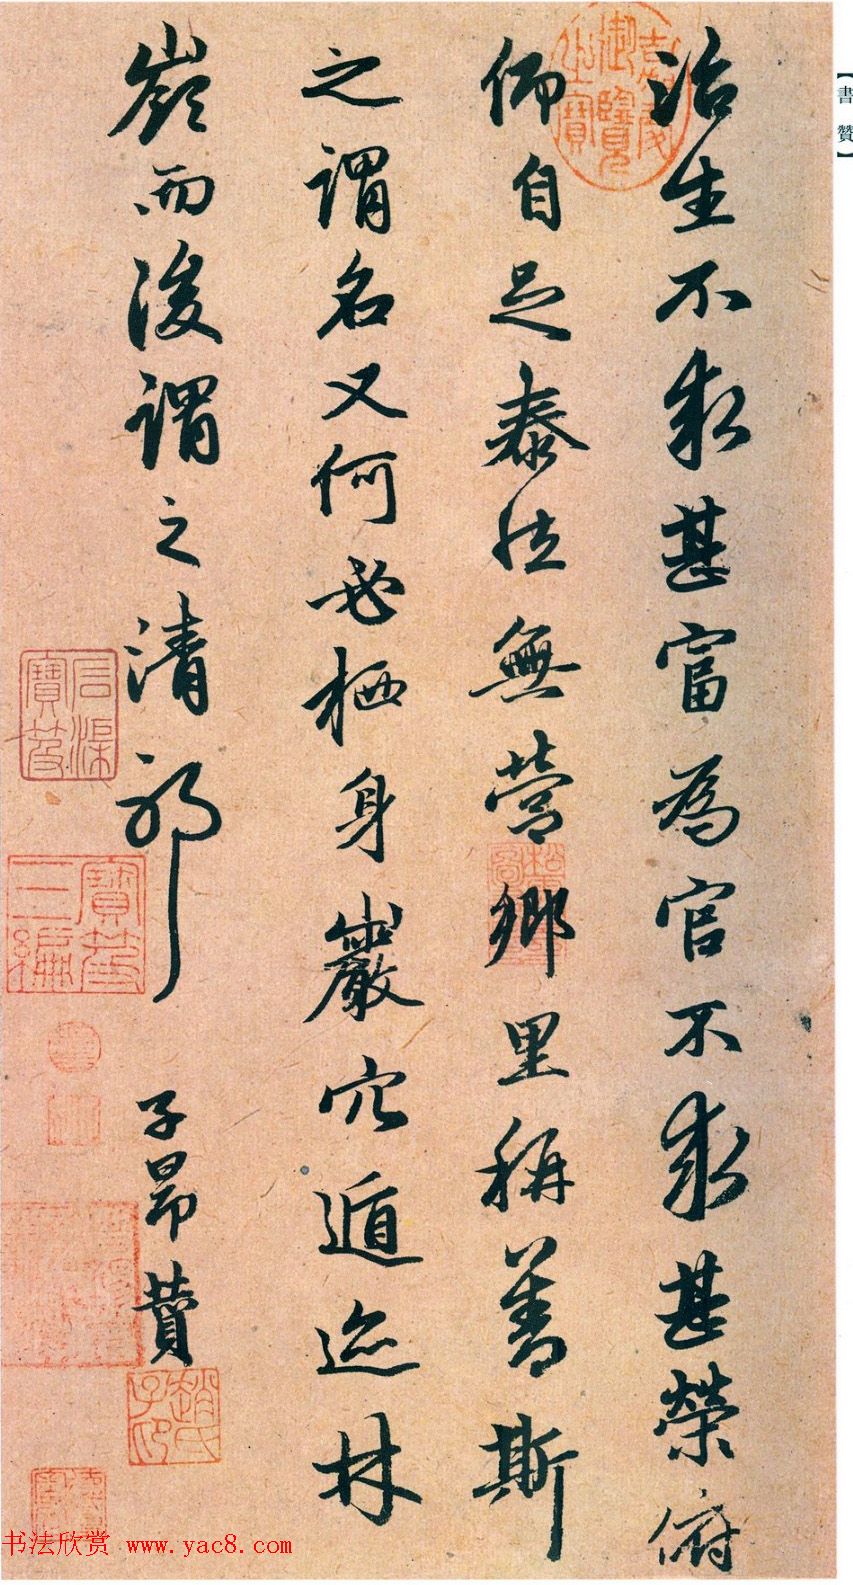 治生不求甚富為官不求甚榮俯
仰自足泰然無營鄉里稱善斯
之謂名又何必栖身巖穴遁迹林
嶺而後謂之清邪
子昂贊
【書贊】
嘉慶御覽之寶
石渠寶笈
寶笈三編
趙氏子印
书法欣赏 www.yac8.com